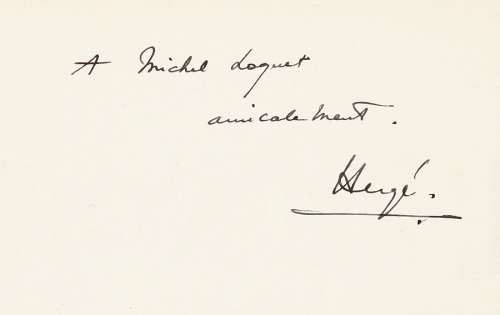 A Michel Loquet
amicalement.
Hergé.